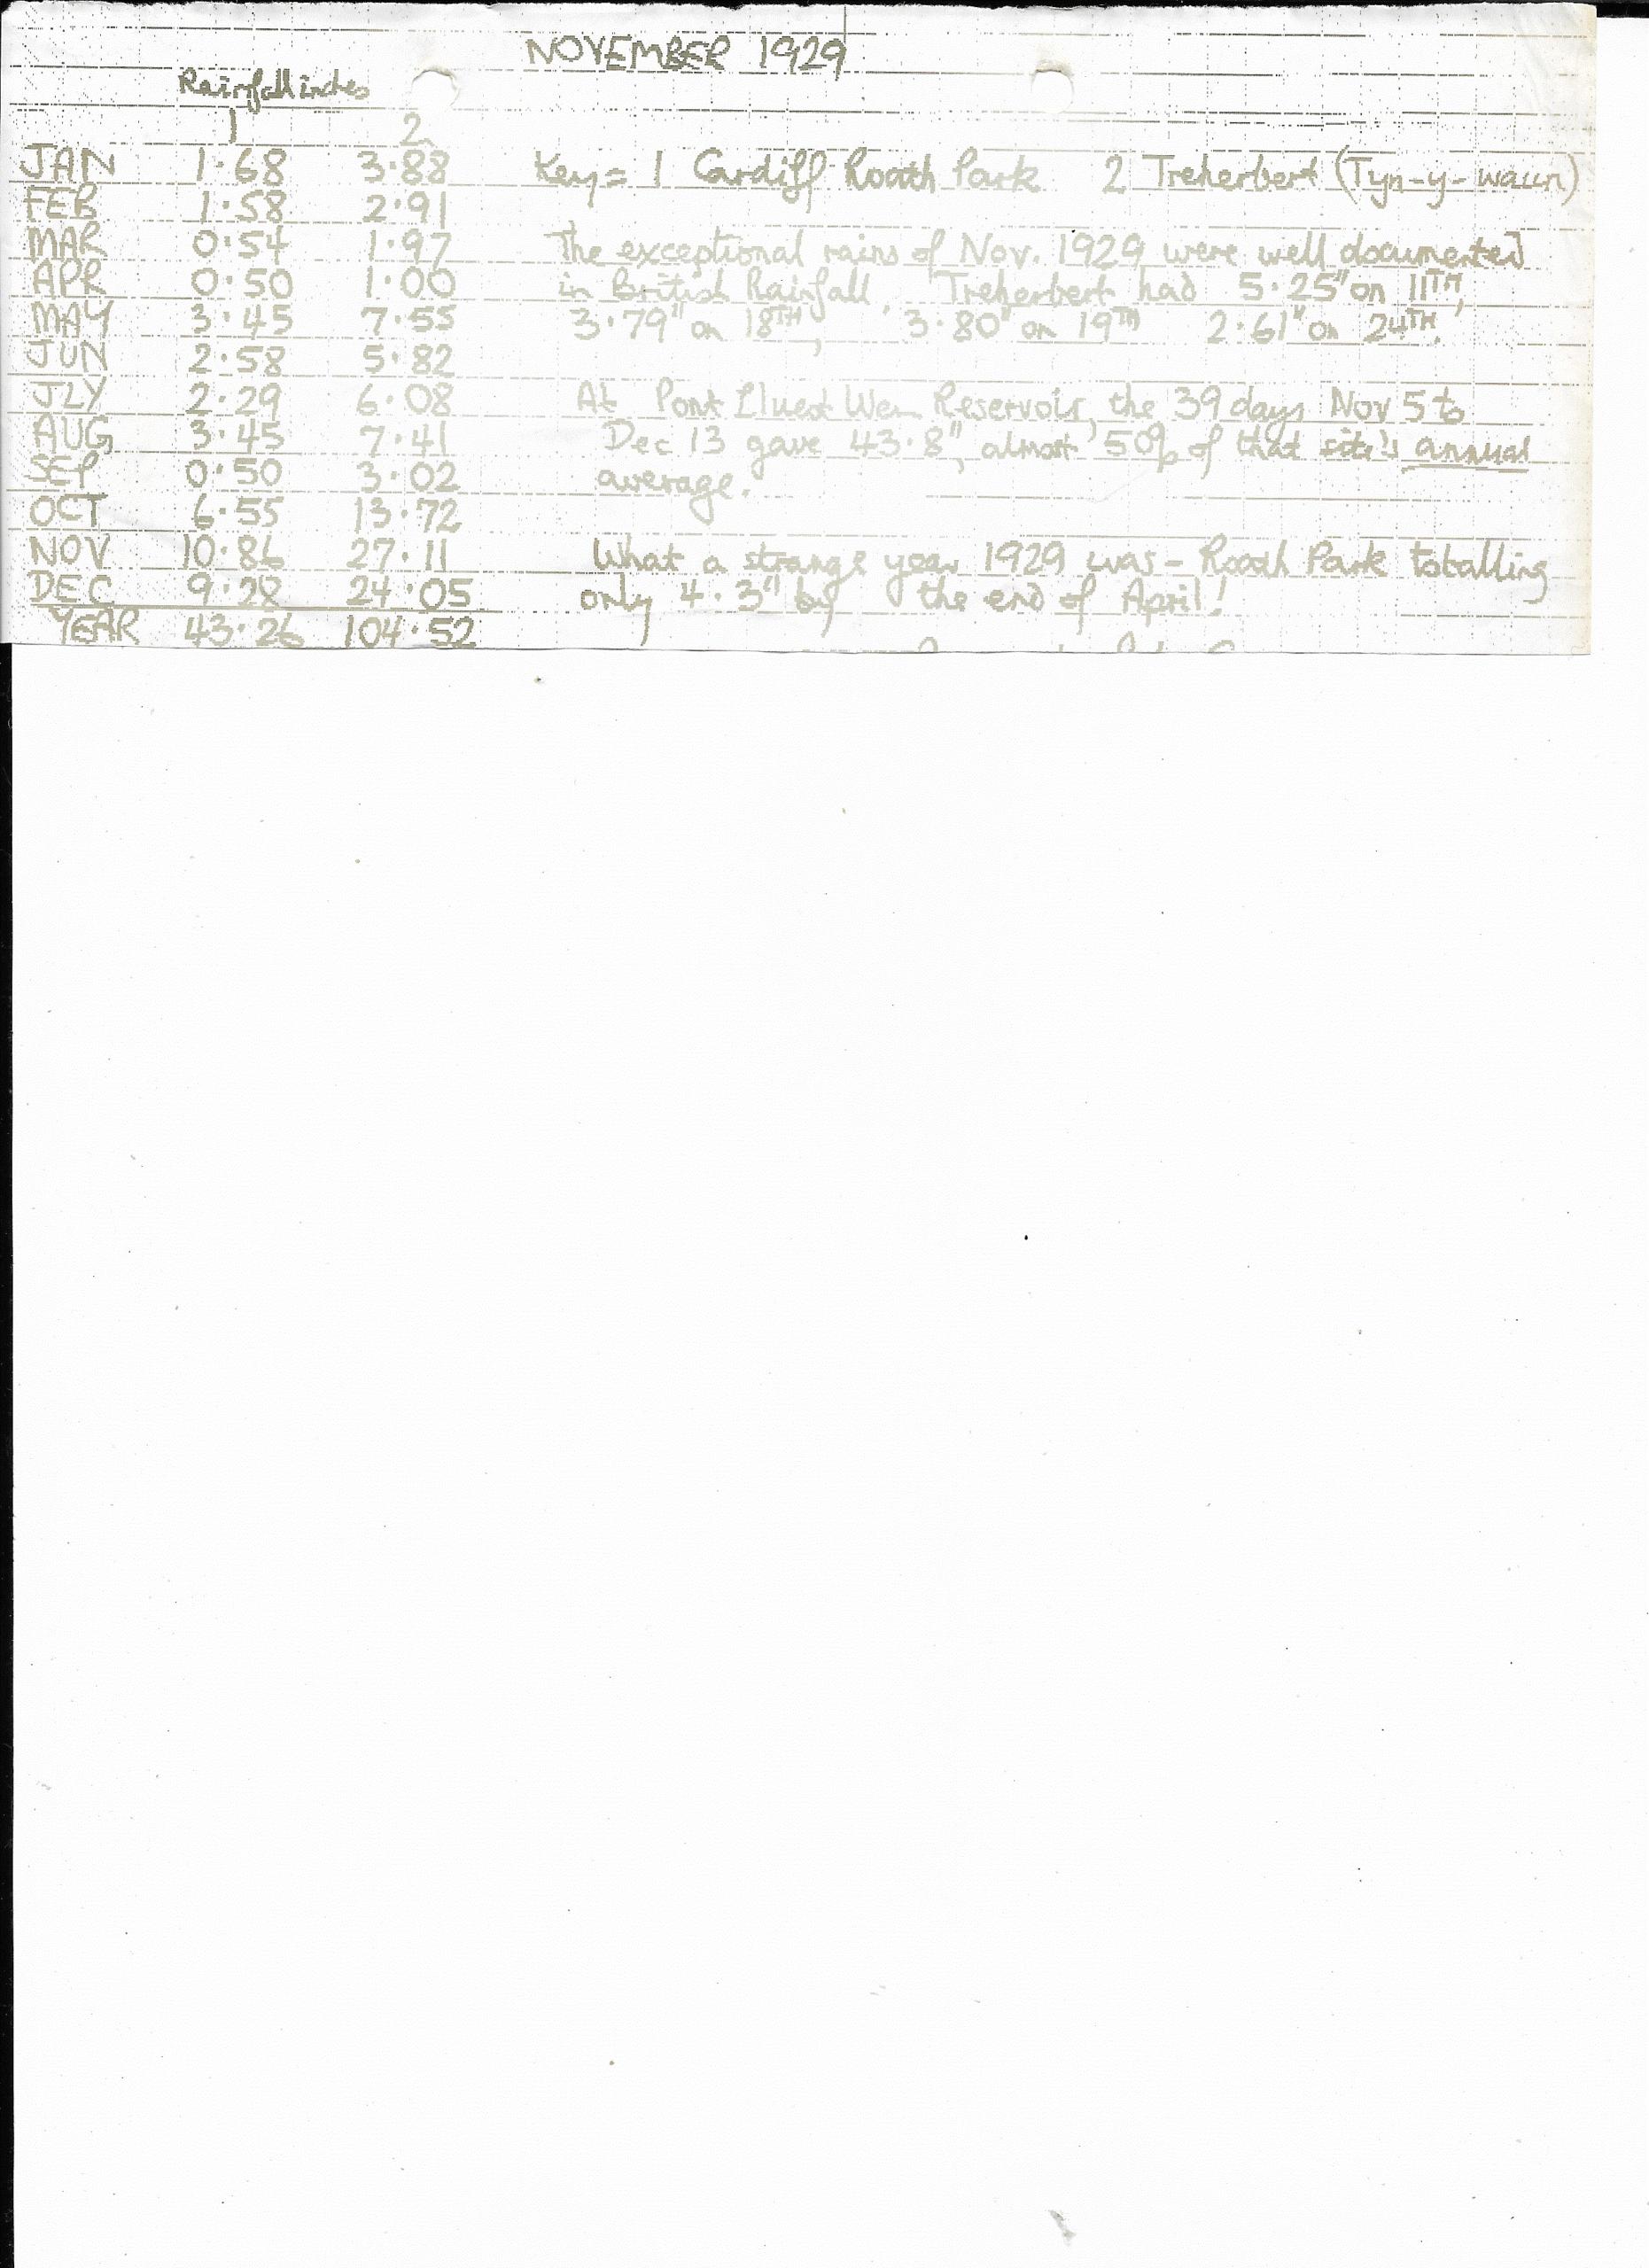 NOVEMBER 1929
Rainfall inches
1 2
JAN 1·68 3·88 Key = 1 Cardiff Roath Park 2 Treherbert (Tyn-y-waun)
FEB 1·58 2·91
MAR 0·54 1·97 The exceptional rains of Nov. 1929 were well documented
APR 0·50 1·00 in British Rainfall. Treherbert had 5·25" on 11TH,
MAY 3·45 7·55 3·79" on 18TH, 3·80" on 19TH 2·61" on 24TH.
JUN 2·58 5·82
JLY 2·29 6·08 At Pont Lluest Wen Reservoir, the 39 days Nov 5 to
AUG 3·45 7·41 Dec 13 gave 43·8", almost 50% of that site's annual
SEP 0·50 3·02 average.
OCT 6·55 13·72
NOV 10·86 27·11 What a strange year 1929 was - Roath Park totalling
DEC 9·28 24·05 only 4·3" by the end of April!
YEAR 43·26 104·52